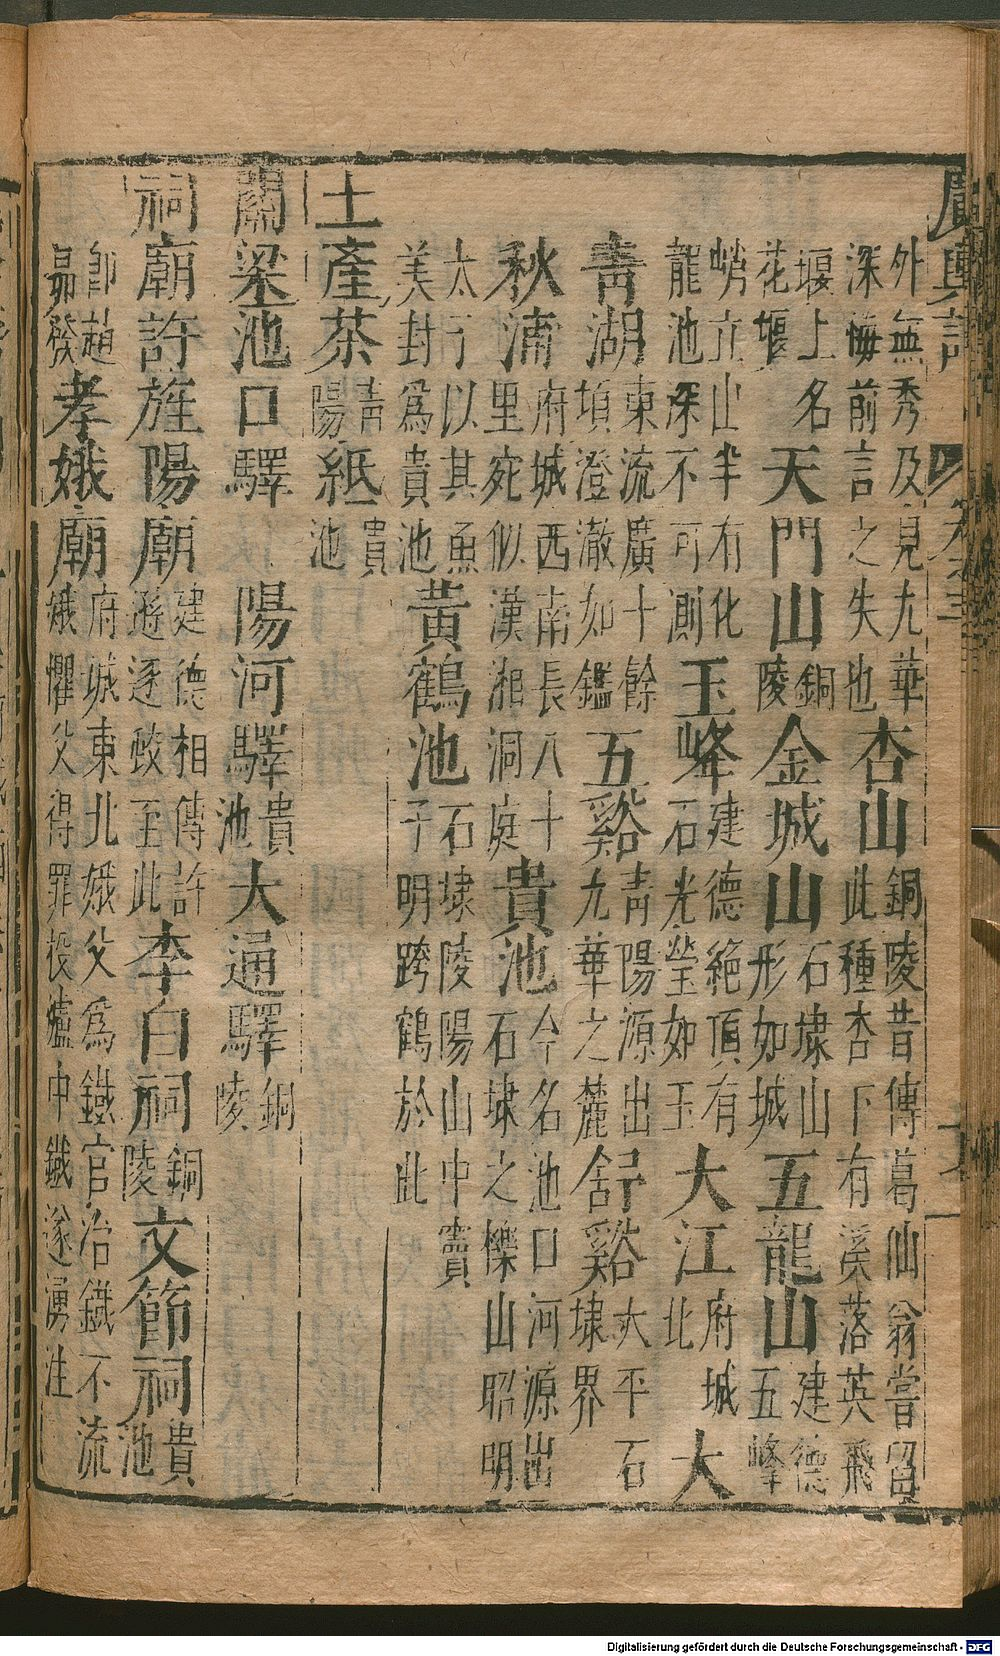 廣輿記 卷之三
外無秀及見九華深悔前言之失也杏山銅陵昔傳葛仙翁嘗留此種杏下有溪落英飛
堰上名花堰天門山銅陵金城山石埭山形如城五龍山建德五峰
峭立山半有化龍池深不可測玉峰建德絕頂有石光瑩如玉大江府城北大
青湖東流廣十餘項澄澈如鑑五谿青陽源出九華之麓舒谿太平石埭界
秋浦府城西南長八十里宛似漢湘洞庭貴池今名池口河源出石埭之櫟山昭明
太子以其魚美封爲貴池黃鶴池石埭陵陽山中竇子明跨鶴於此
土產茶青陽紙貴池
關梁池口驛 陽河驛貴池大通驛銅陵
祠廟許旌陽廟建德相傳許遜逐蛟至此李白祠銅陵文節祠貴池
卽趙昴發孝娥廟府城東北娥父爲鐵官冶鐵不流娥懼父得罪投爐中鐵遂湧注
Digitalisierung gefördert durch die Deutsche Forschungsgemeinschaft - DFG